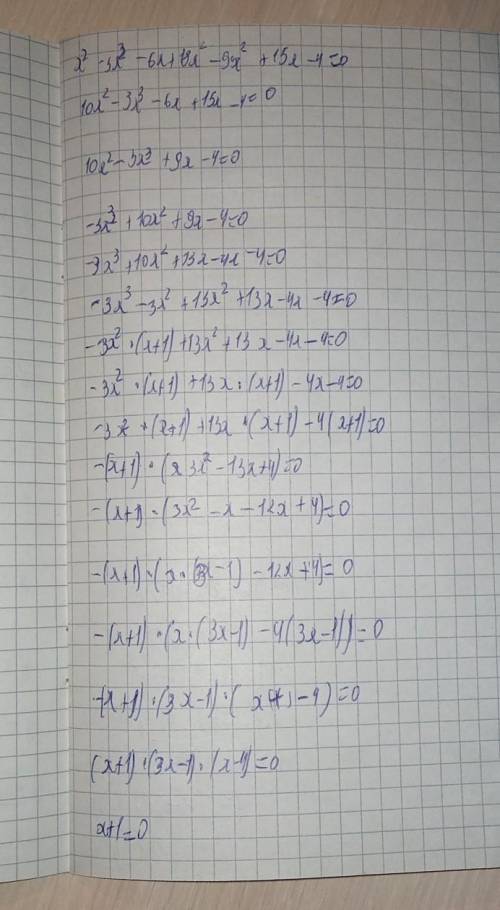 x² - 3x³ - 6x + 18x² - 9x² + 15x - 4 = 0
10x² - 3x³ - 6x + 15x - 4 = 0
10x² - 3x³ + 9x - 4 = 0
-3x³ + 10x² + 9x - 4 = 0
-3x³ + 10x² + 13x - 4x - 4 = 0
-3x³ - 3x² + 13x² + 13x - 4x - 4 = 0
-3x² · (x+1) + 13x² + 13x - 4x - 4 = 0
-3x² · (x+1) + 13x · (x+1) - 4x - 4 = 0
-3x² · (x+1) + 13x · (x+1) - 4(x+1) = 0
-(x+1) · (3x² - 13x + 4) = 0
-(x+1) · (3x² - x - 12x + 4) = 0
-(x+1) · (x · (3x-1) - 12x + 4) = 0
-(x+1) · (x · (3x-1) - 4(3x-1)) = 0
-(x+1) · (3x-1) · (x - 4) = 0
(x+1) · (3x-1) · (x-4) = 0
x+1 = 0